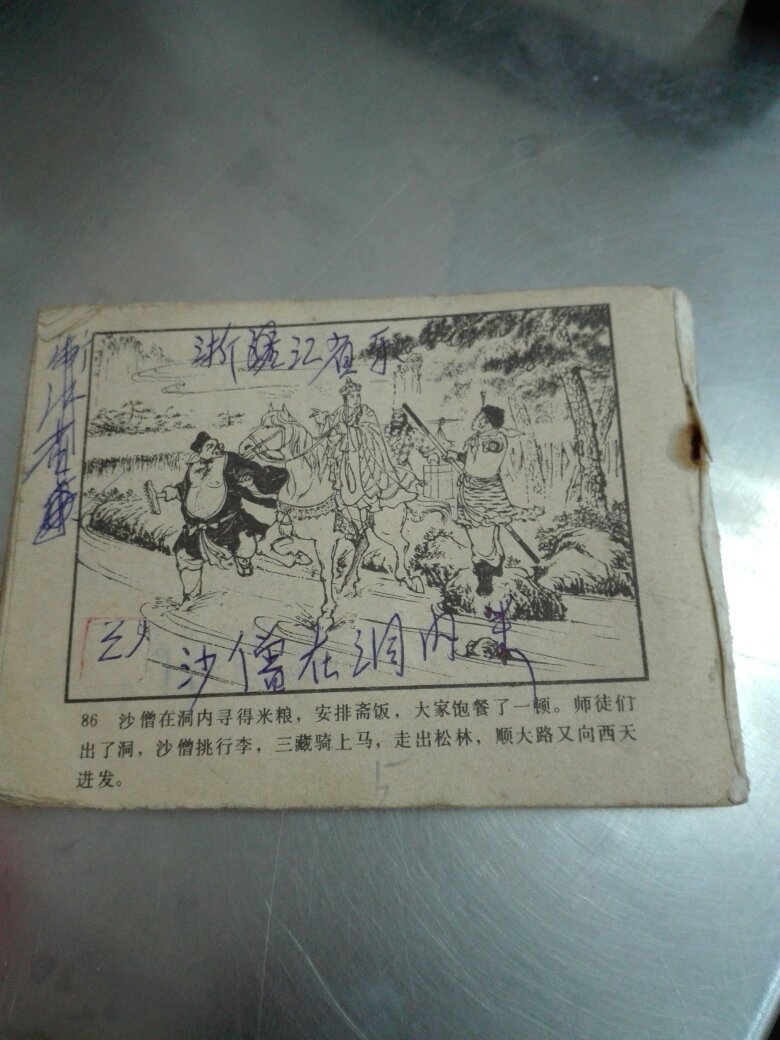 浙江省
沙僧在洞内
86 沙僧在洞内寻得米粮，安排斋饭，大家饱餐了一顿。师徒们
出了洞，沙僧挑行李，三藏骑上马，走出松林，顺大路又向西天
进发。